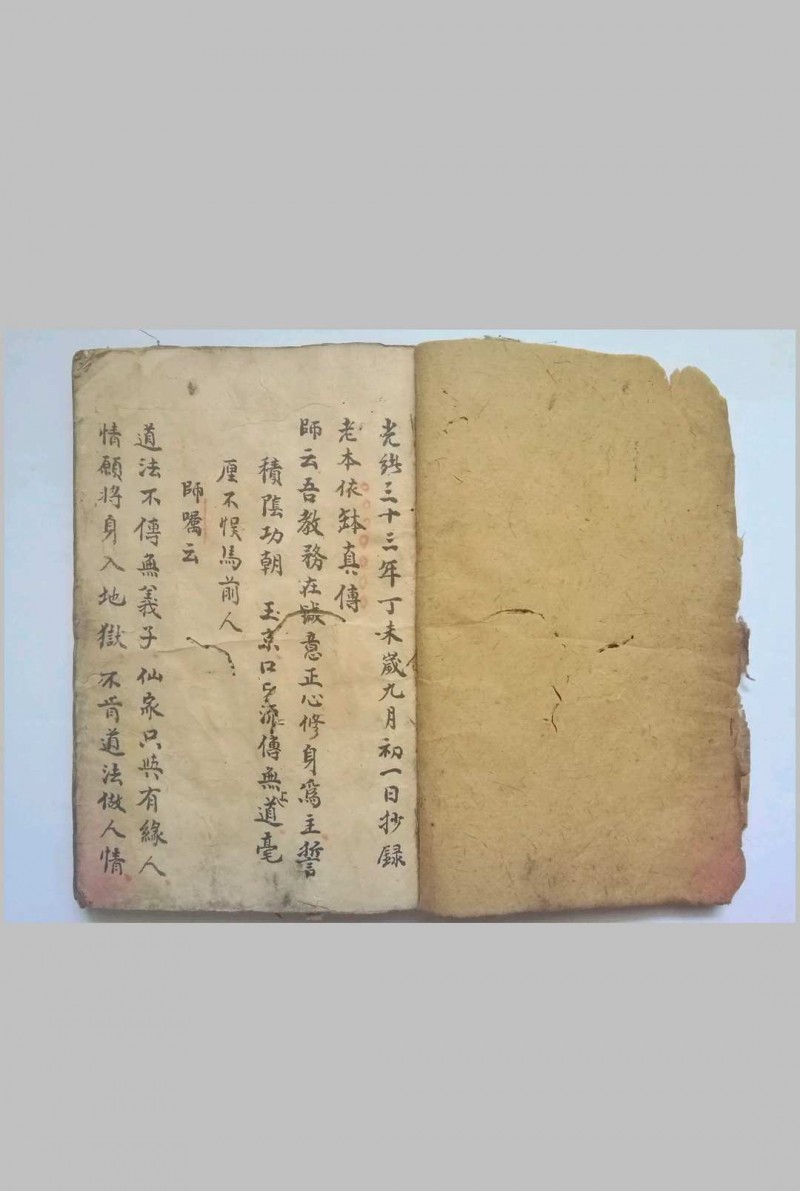 光緒三十三年丁未歲九月初一日抄録
老本依缽真傳
師云吾教務在誠意正心修身為主誓
積陰功朝 玉京口口派傳無道毫
厘不悮馬前人
師囑云
道法不傳無義子 仙家只與有緣人
情願將身入地獄 不肯道法做人情